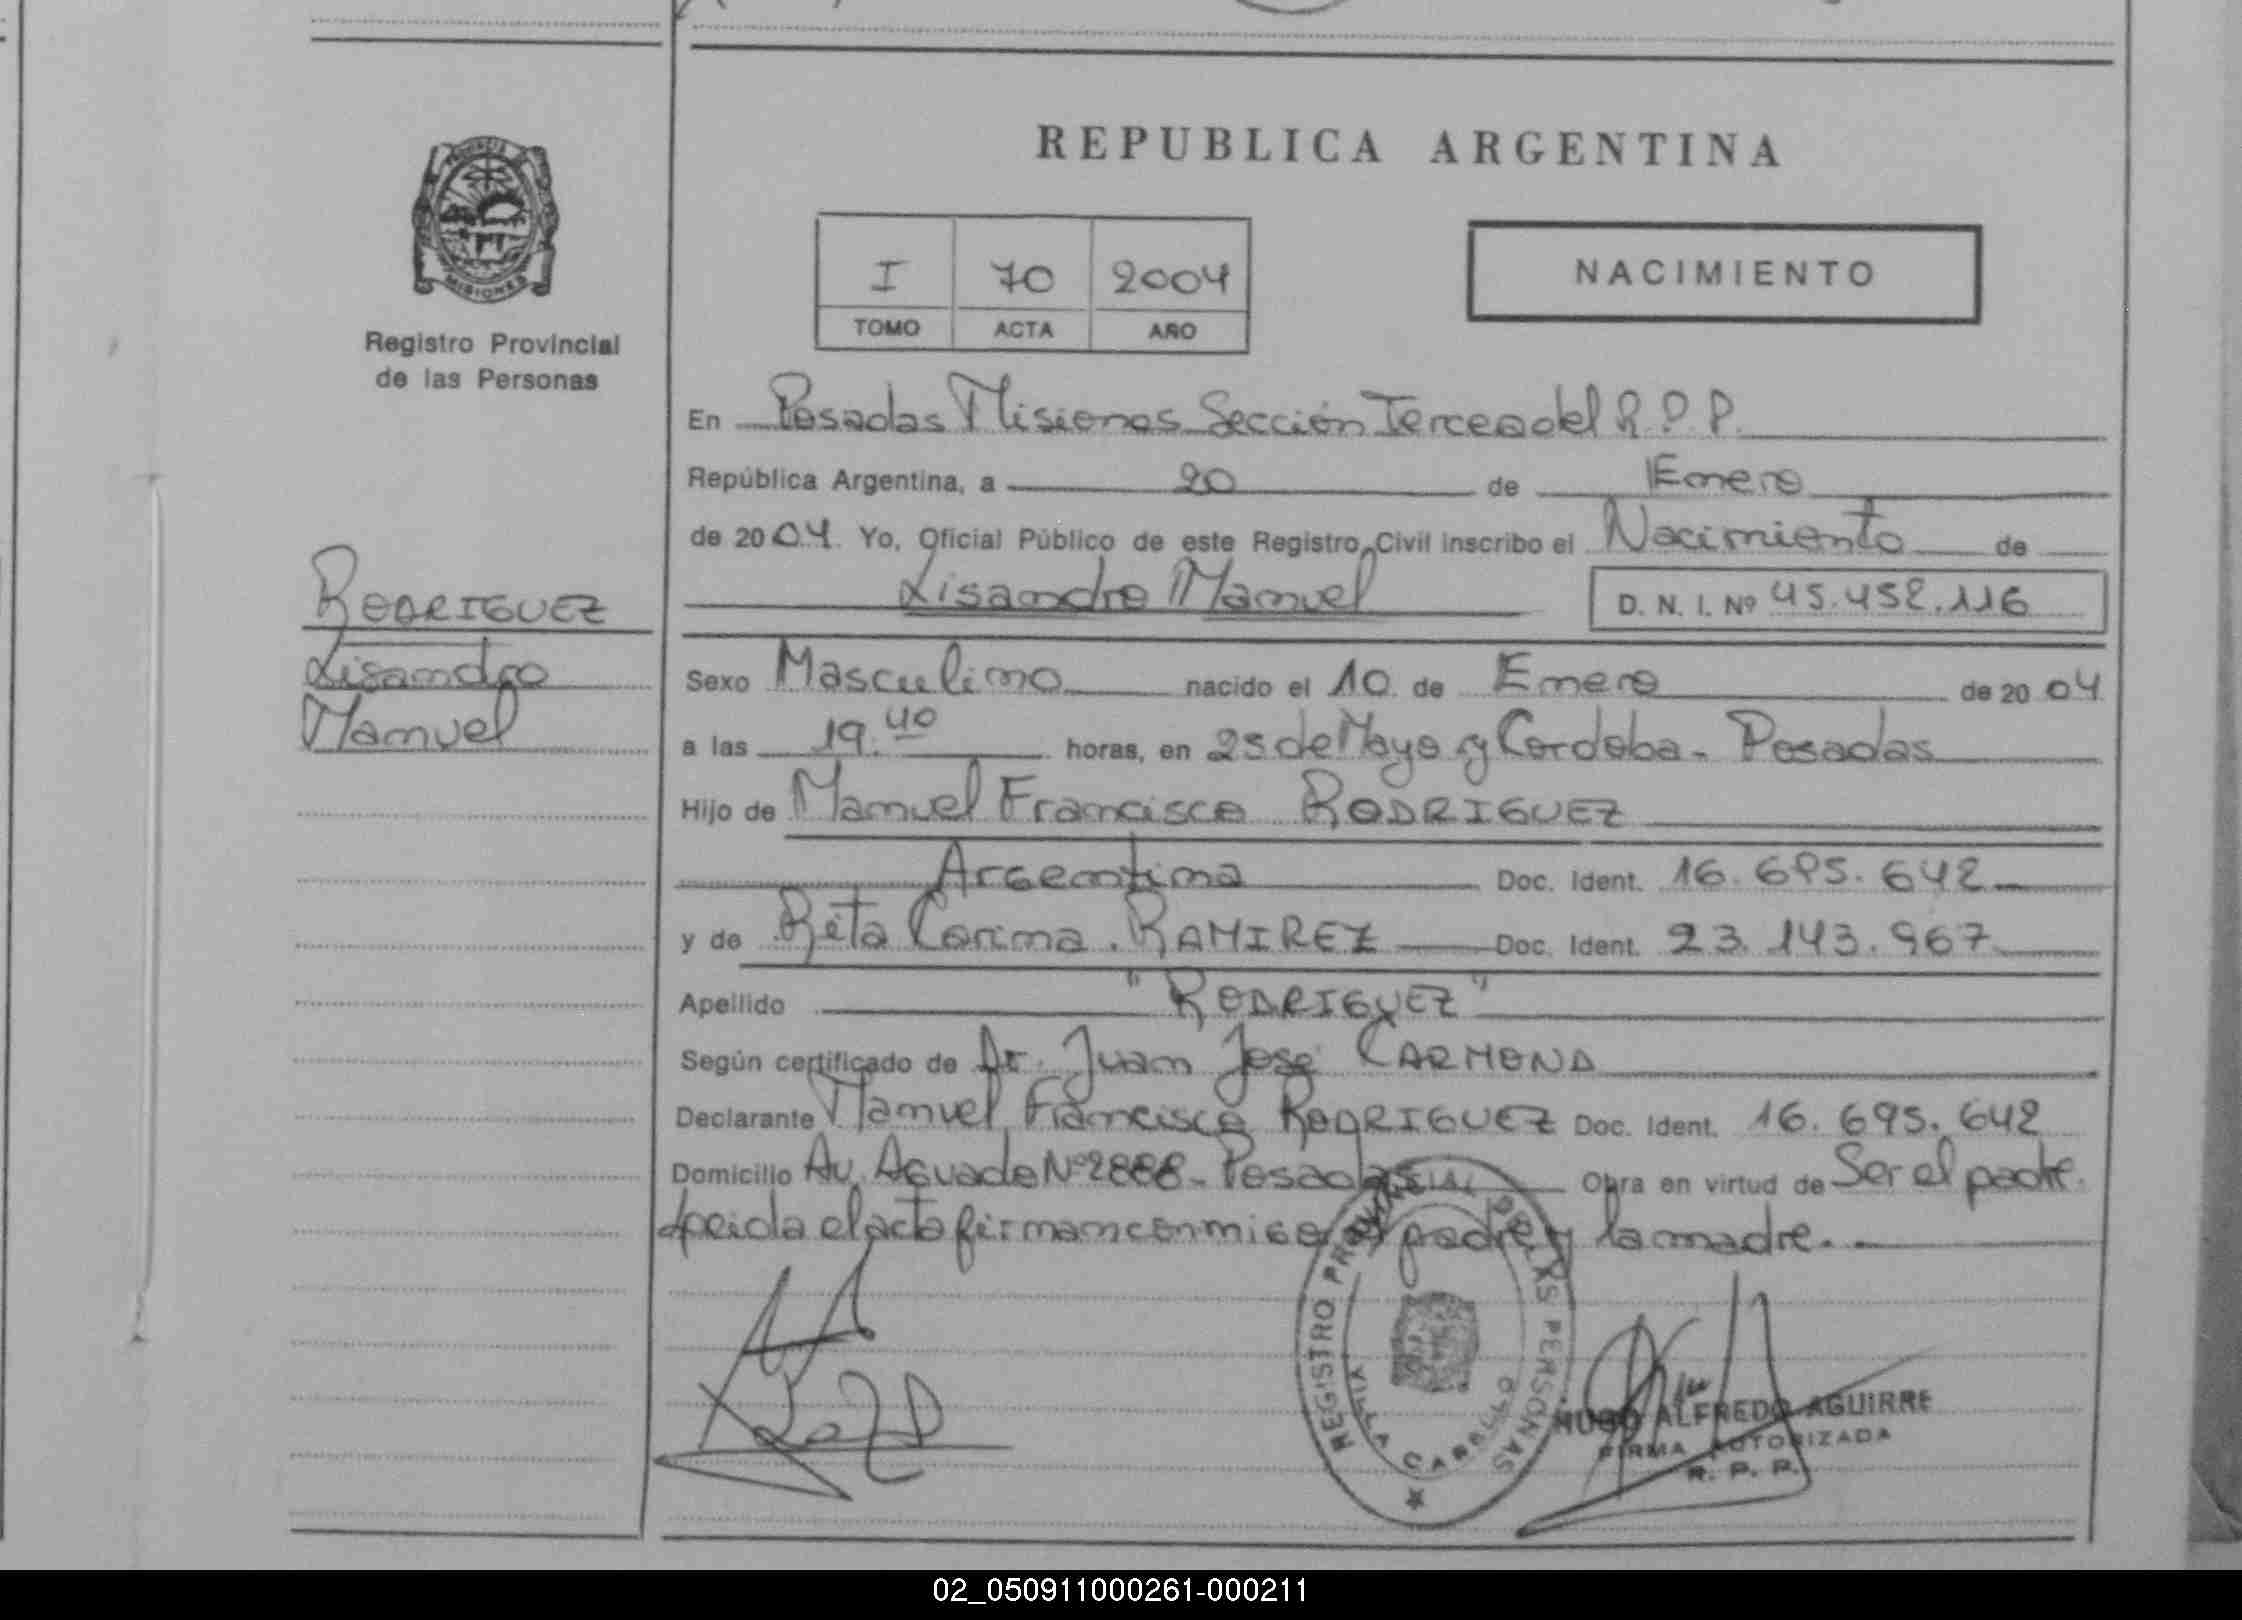 REPUBLICA ARGENTINA
PROVINCIA DE
MISIONES
Registro Provincial
de las Personas
I 70 2004
TOMO ACTA AÑO
NACIMIENTO
En Posadas Misiones Sección Tercera del R.P.P.
República Argentina, a 20 de Enero
de 2004. Yo, Oficial Público de este Registro Civil inscribo el Nacimiento de
Lisandro Manuel
D. N. I. Nº 45.452.116
RODRIGUEZ
Lisandro
Manuel
Sexo Masculino nacido el 10 de Enero de 2004
a las 19.40 horas, en 25 de Mayo y Cordoba - Posadas
Hijo de Manuel Francisco RODRIGUEZ
Argentina Doc. Ident. 16.695.642
y de Rita Carina RAMIREZ Doc. Ident. 23.143.967
Apellido "RODRIGUEZ"
Según certificado de Dr. Juan José CARMONA
Declarante Manuel Francisco RODRIGUEZ Doc. Ident. 16.695.642
Domicilio Av. Aguado Nº 2888 - Posadas Obra en virtud de Ser el padre.
el acta firman conmigo el padre y la madre.
REGISTRO PROVINCIAL DE LAS PERSONAS
HUGO ALFREDO AGUIRRE
FIRMA AUTORIZADA
R. P. P.
02_050911000261-000211